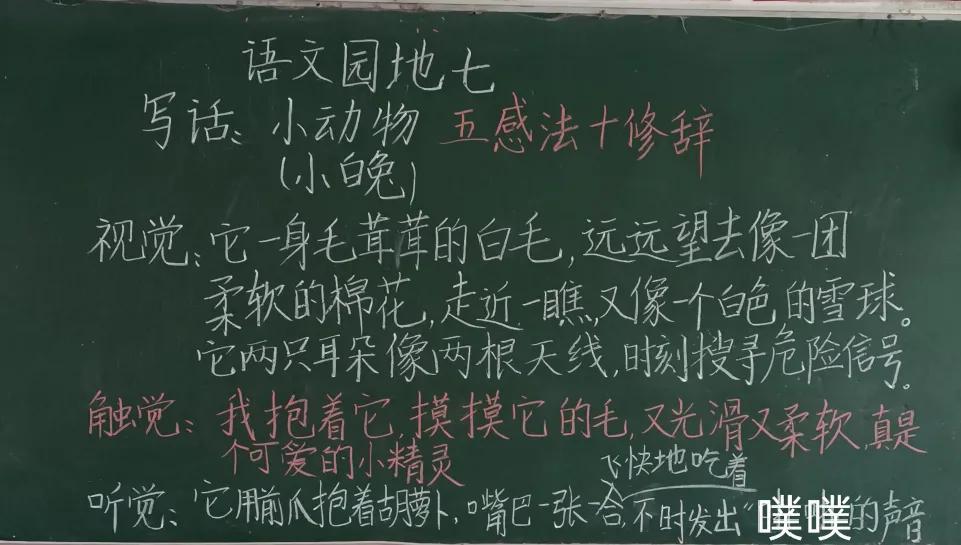 语文园地七
写话：小动物 五感法十修辞
(小白兔)
视觉：它一身毛茸茸的白毛，远远望去像一团
柔软的棉花，走近一瞧，又像一个白色的雪球。
它两只耳朵像两根天线，时刻搜寻危险信号。
触觉：我抱着它，摸摸它的毛，又光滑又柔软，真是
个可爱的小精灵
飞快地吃着
听觉：它用前爪抱着胡萝卜，嘴巴一张一合，不时发出“的声音
噗噗